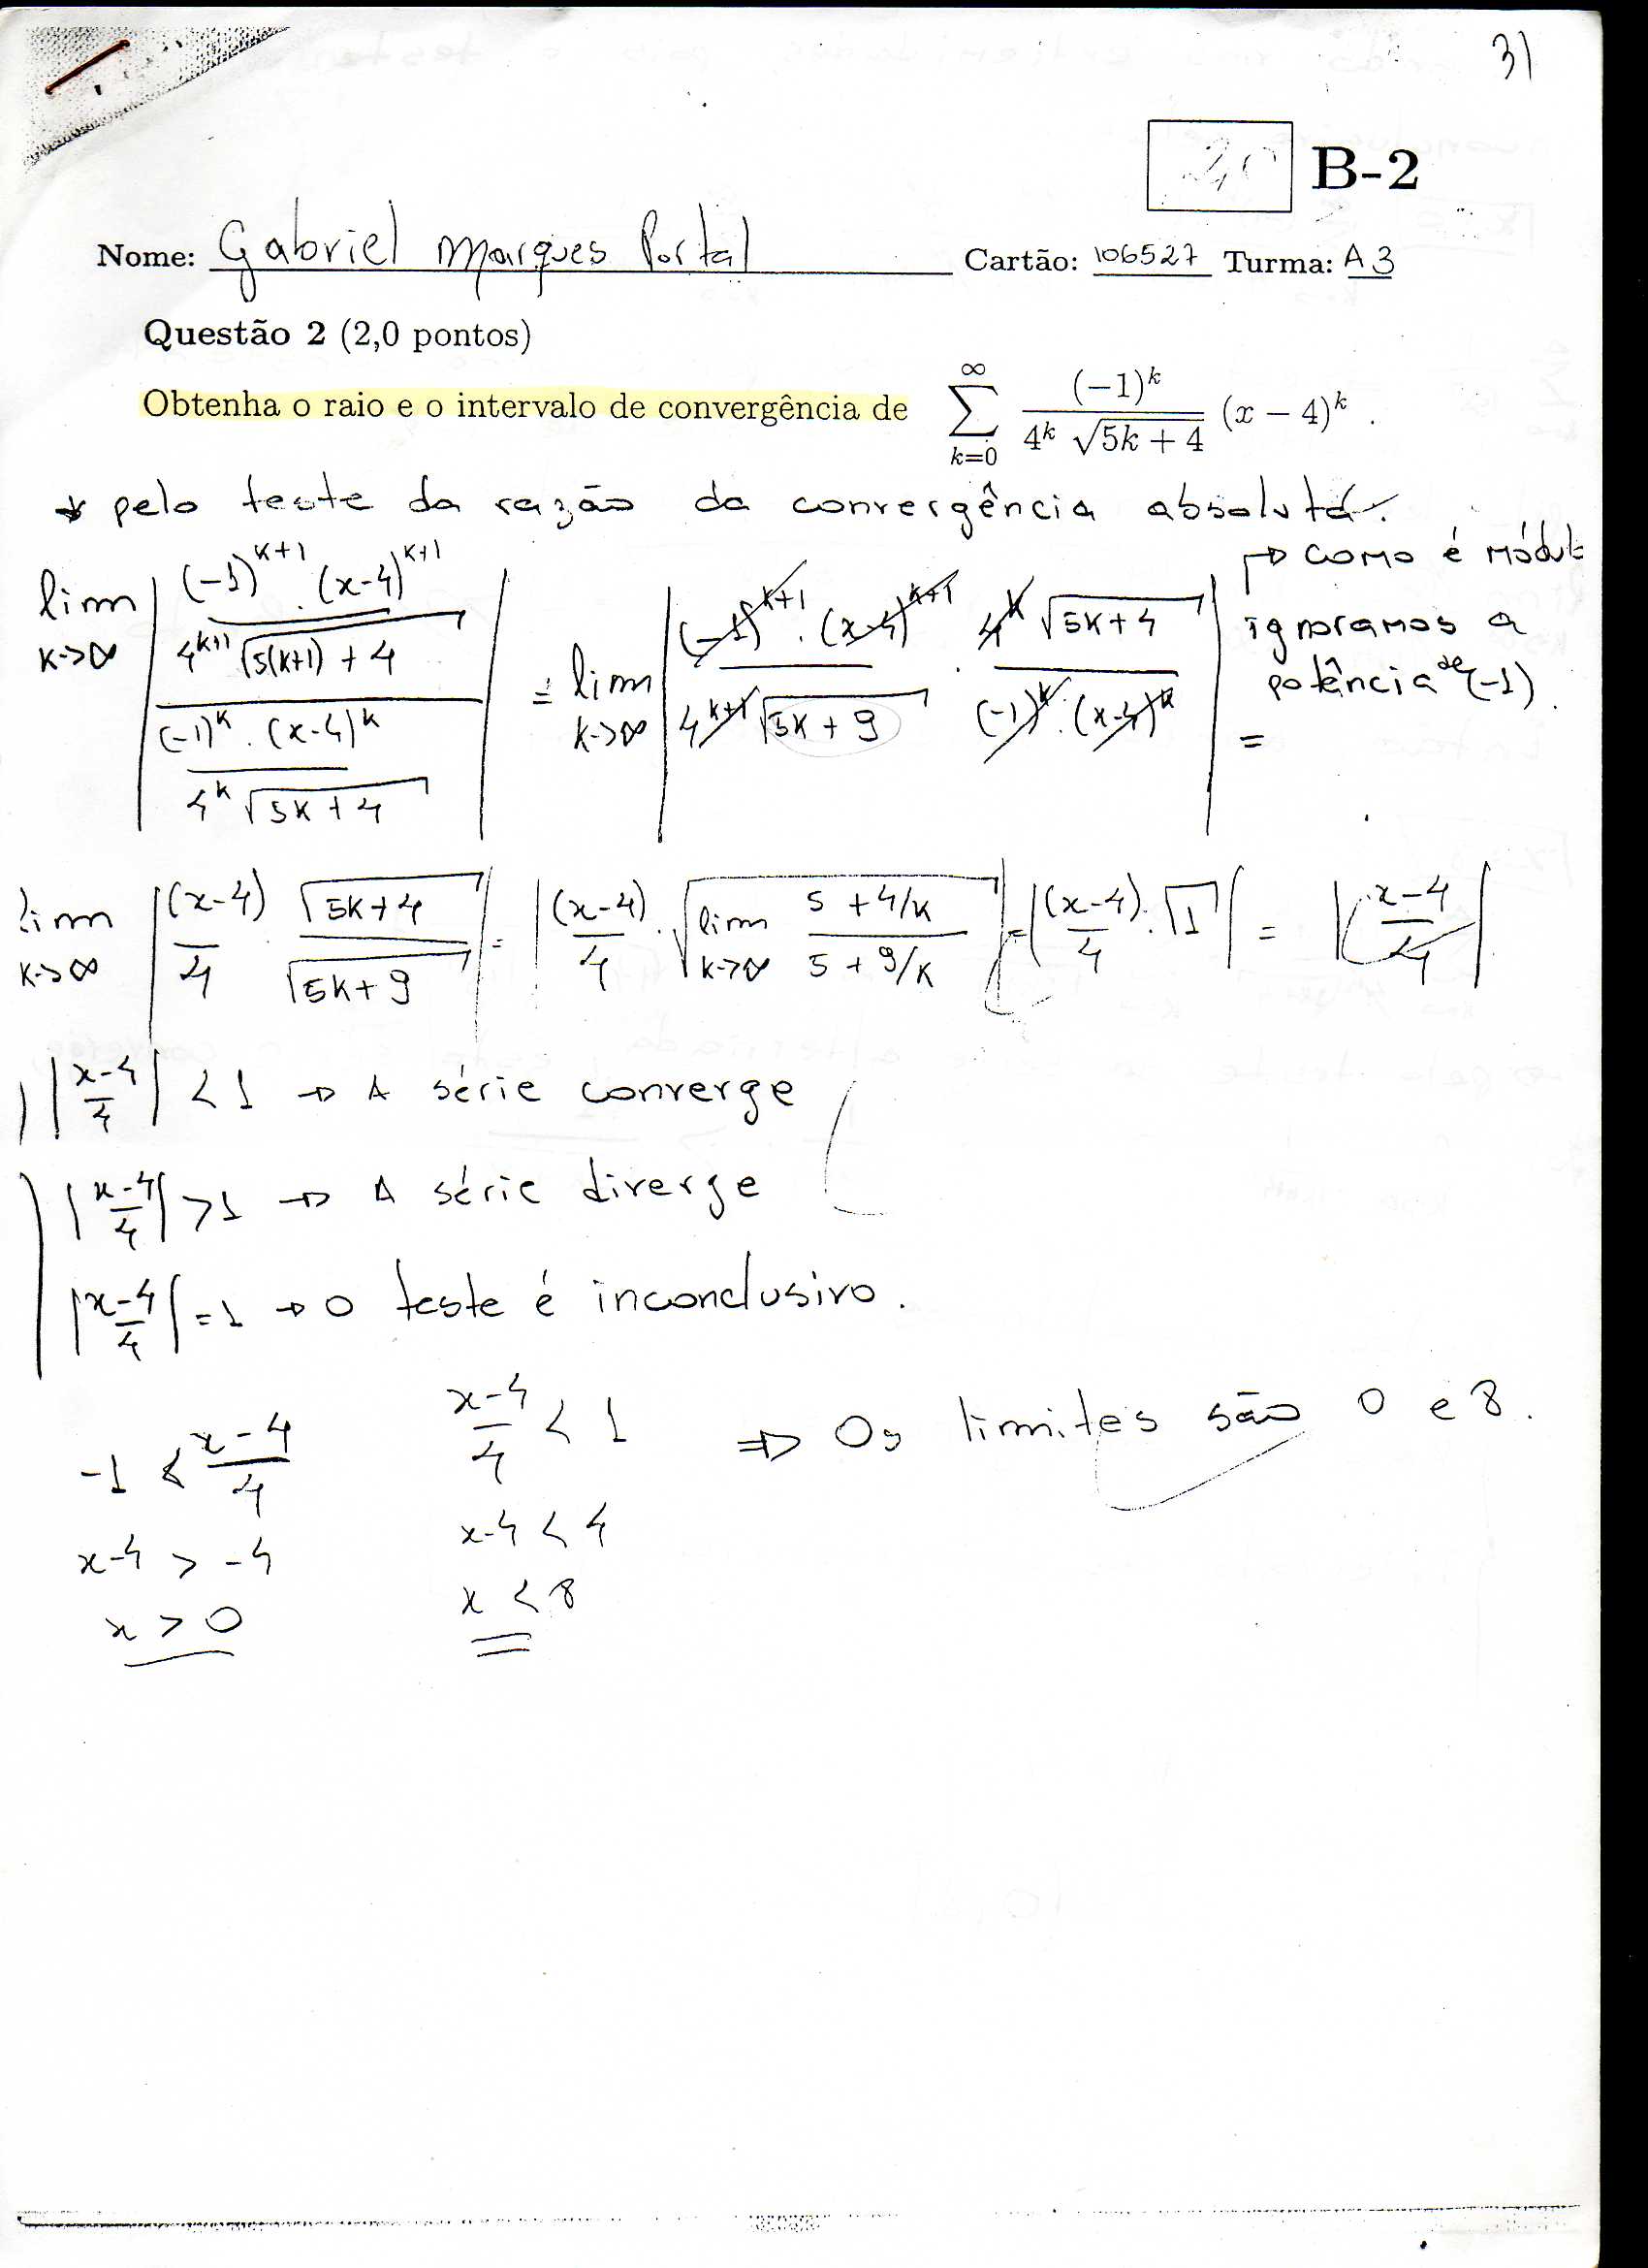 31
2,0 B-2
Nome: Gabriel Marques Portal Cartão: 106527 Turma: A3
Questão 2 (2,0 pontos)
Obtenha o raio e o intervalo de convergência de \sum_{k=0}^{\infty} \frac{(-1)^k}{4^k \sqrt{5k+4}} (x-4)^k .
* pelo teste da razão da convergência absoluta.
lim_{k→∞} | \frac{\frac{(-1)^{k+1} . (x-4)^{k+1}}{4^{k+1} \sqrt{5(k+1)+4}}}{\frac{(-1)^k . (x-4)^k}{4^k \sqrt{5k+4}}} | = lim_{k→∞} | \frac{(-1)^{k+1} . (x-4)^{k+1}}{4^{k+1} \sqrt{5k+9}} . \frac{4^k \sqrt{5k+4}}{(-1)^k . (x-4)^k} | =
→ como é módul
ignoramos a
potência de (-1).
lim_{k→∞} | \frac{(x-4)}{4} . \frac{\sqrt{5k+4}}{\sqrt{5k+9}} | = | \frac{(x-4)}{4} . \sqrt{lim_{k→∞} \frac{5+4/k}{5+9/k}} | = | \frac{(x-4)}{4} . \sqrt{1} | = | \frac{x-4}{4} |
| \frac{x-4}{4} | < 1 → A série converge
| \frac{x-4}{4} | > 1 → A série diverge
| \frac{x-4}{4} | = 1 → O teste é inconclusivo.
-1 < \frac{x-4}{4} \frac{x-4}{4} < 1 ⇒ Os limites são 0 e 8.
x-4 > -4 x-4 < 4
x > 0 x < 8